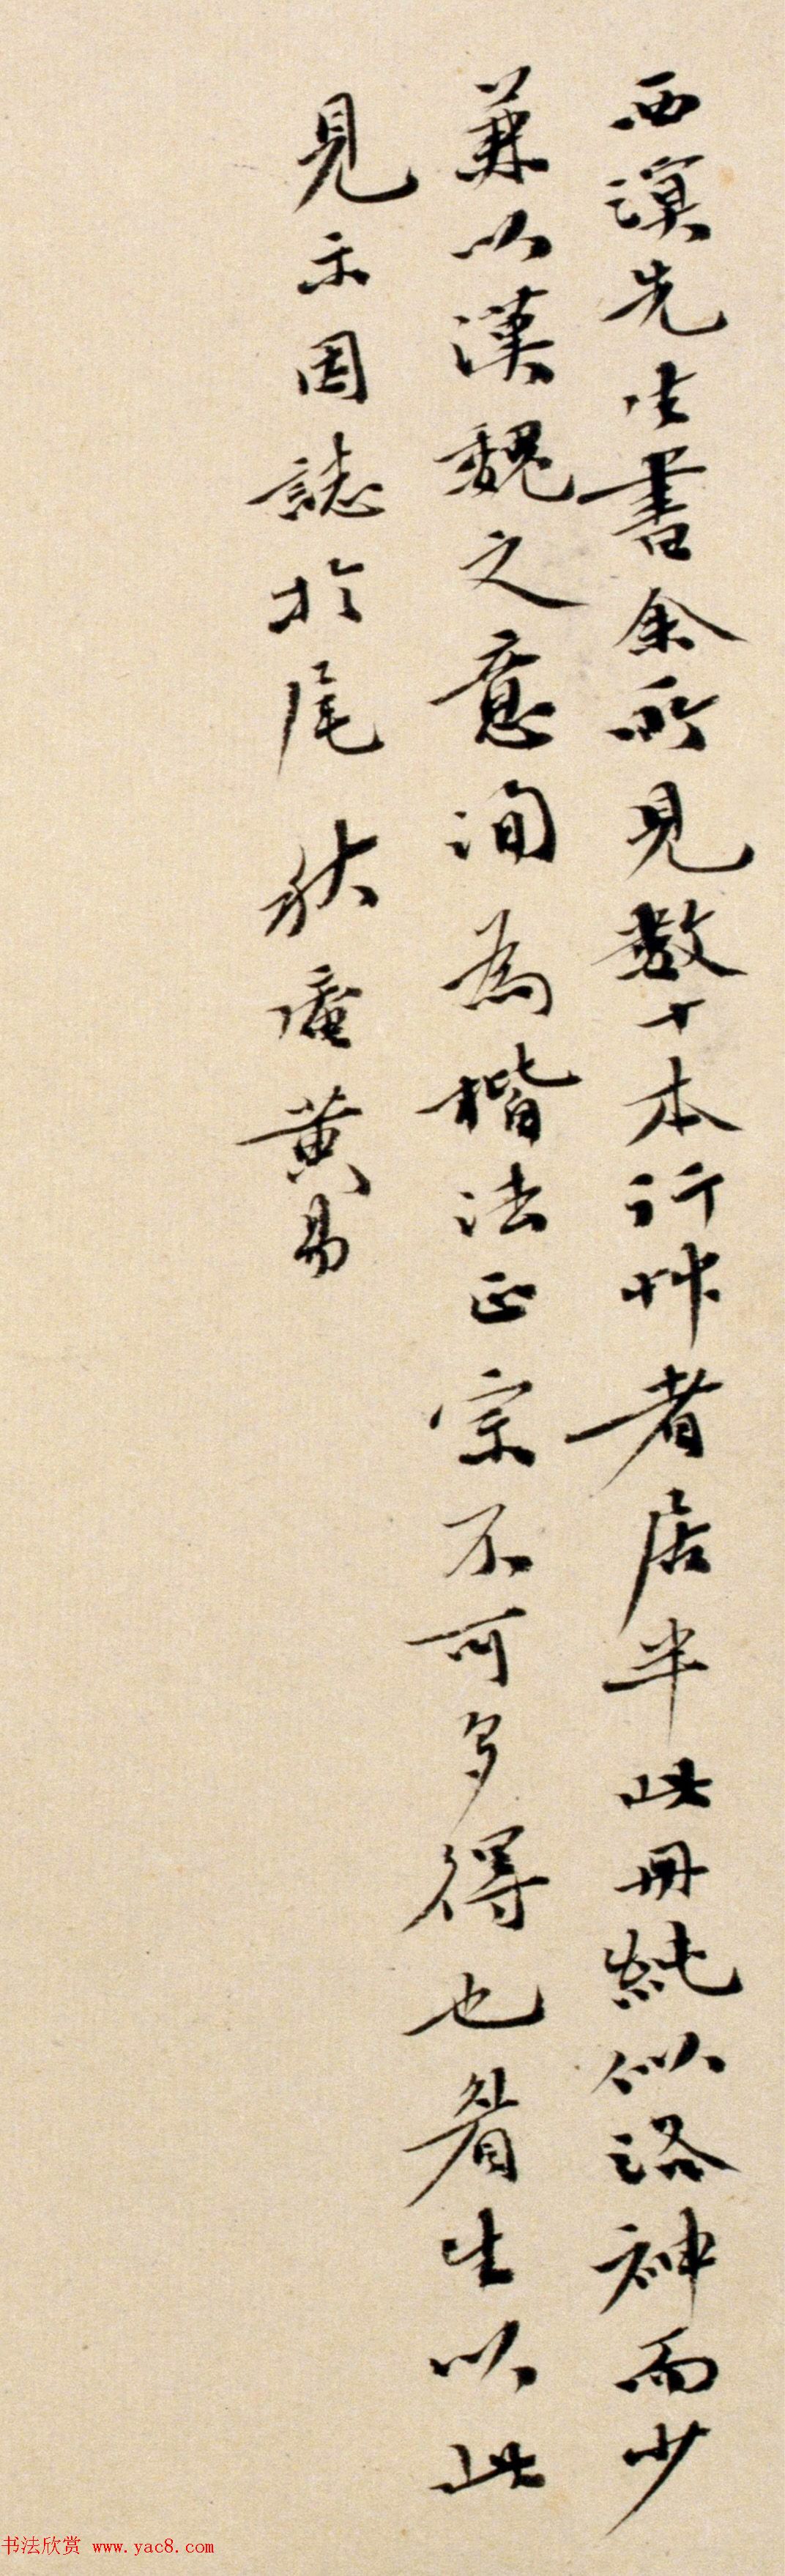 西溟先生書余所見數十本行艸者居半此冊純似洛神而少
兼以漢魏之意洵為楷法正宗不可多得也生以此
見示因誌於尾 秋庵黃易
书法欣赏 www.yac8.com